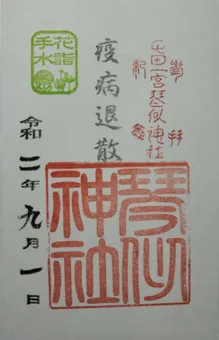 奉拝
屯田一宮琴似神社
疫病退散
花詣
手水
琴似
神社
令和二年九月一日